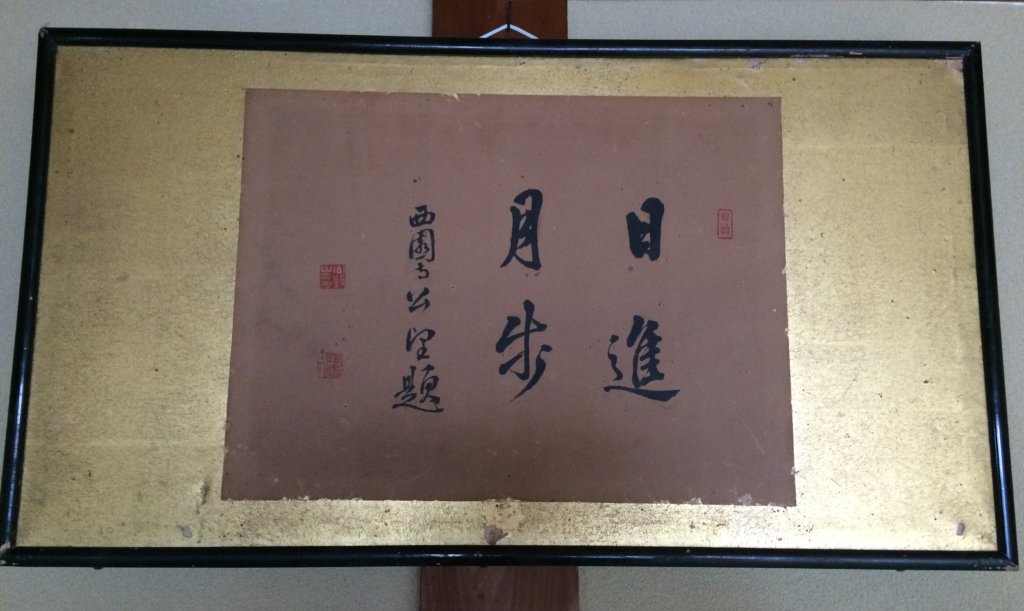 日進
月歩
西園寺公望題